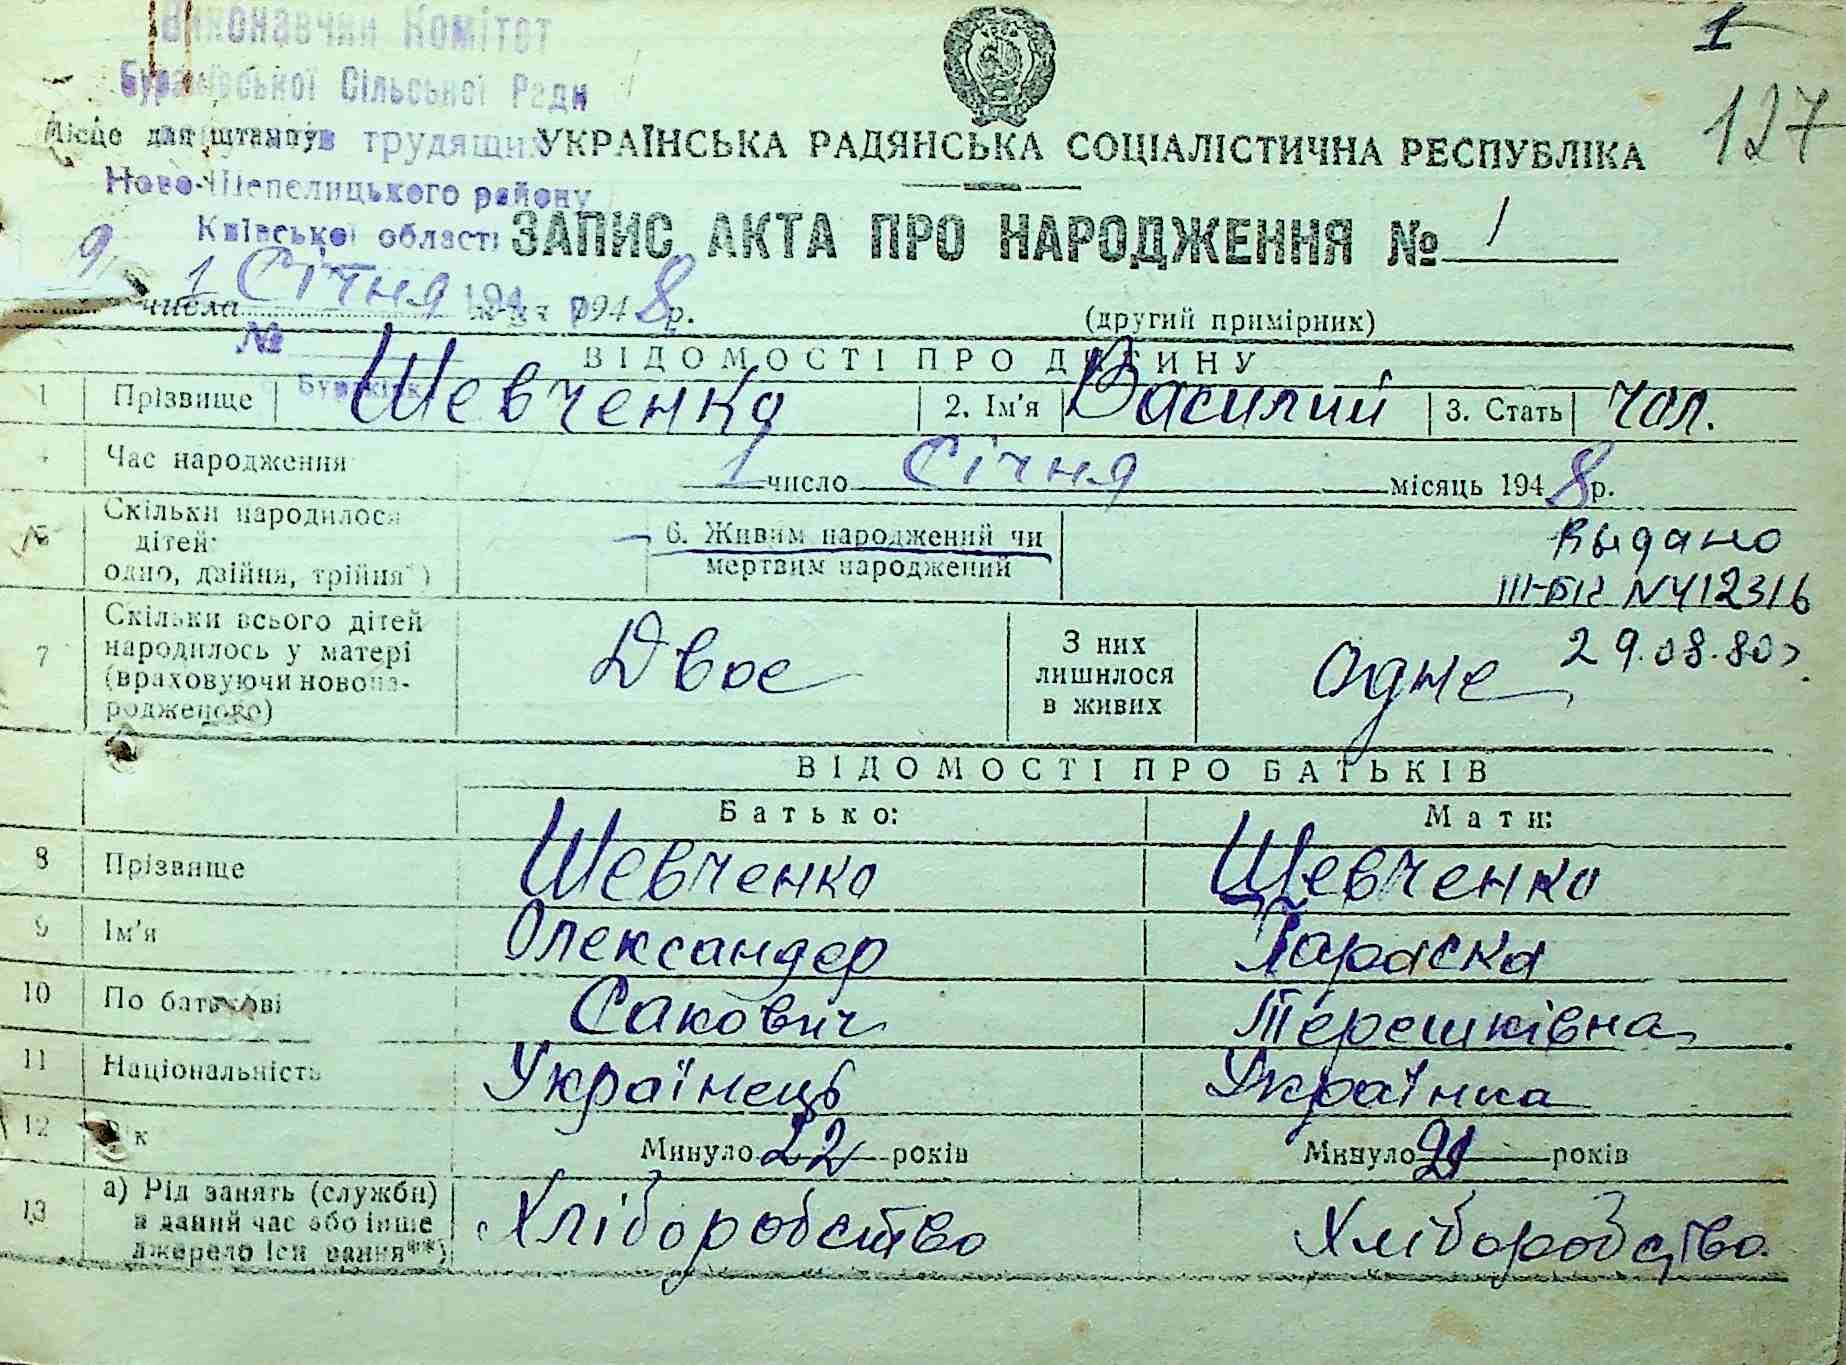 Виконавчий Комітет
Бураківської Сільської Ради
Місце для штампу трудящих
Ново-Шепелицького району
Київської області
1
127
УКРАЇНСЬКА РАДЯНСЬКА СОЦІАЛІСТИЧНА РЕСПУБЛІКА
ЗАПИС АКТА ПРО НАРОДЖЕННЯ № 1
числа 1 Січня 194 1948 р.
(другий примірник)
№
ВІДОМОСТІ ПРО ДИТИНУ
1 Прізвище Шевченко 2. Ім'я Василий 3. Стать чол.
Час народження 1 число Січня місяць 1948 р.
5 Скільки народилося дітей: одно, двійня, трійня*) 6. Живим народжений чи мертвим народжений
Выдано
III-БК N412316
29.08.80г.
7 Скільки всього дітей народилось у матері (враховуючи новонародженого) Двоє З них лишилося в живих Одне
ВІДОМОСТІ ПРО БАТЬКІВ
Батько: Мати:
8 Прізвище Шевченко Шевченко
9 Ім'я Олександер Параска
10 По батькові Сакович Терешківна
11 Національність Українець Українка
12 Вік Минуло 22 років Минуло 21 років
13 а) Рід занять (служби) в даний час або інше джерело існування**) Хліборобство Хліборобство